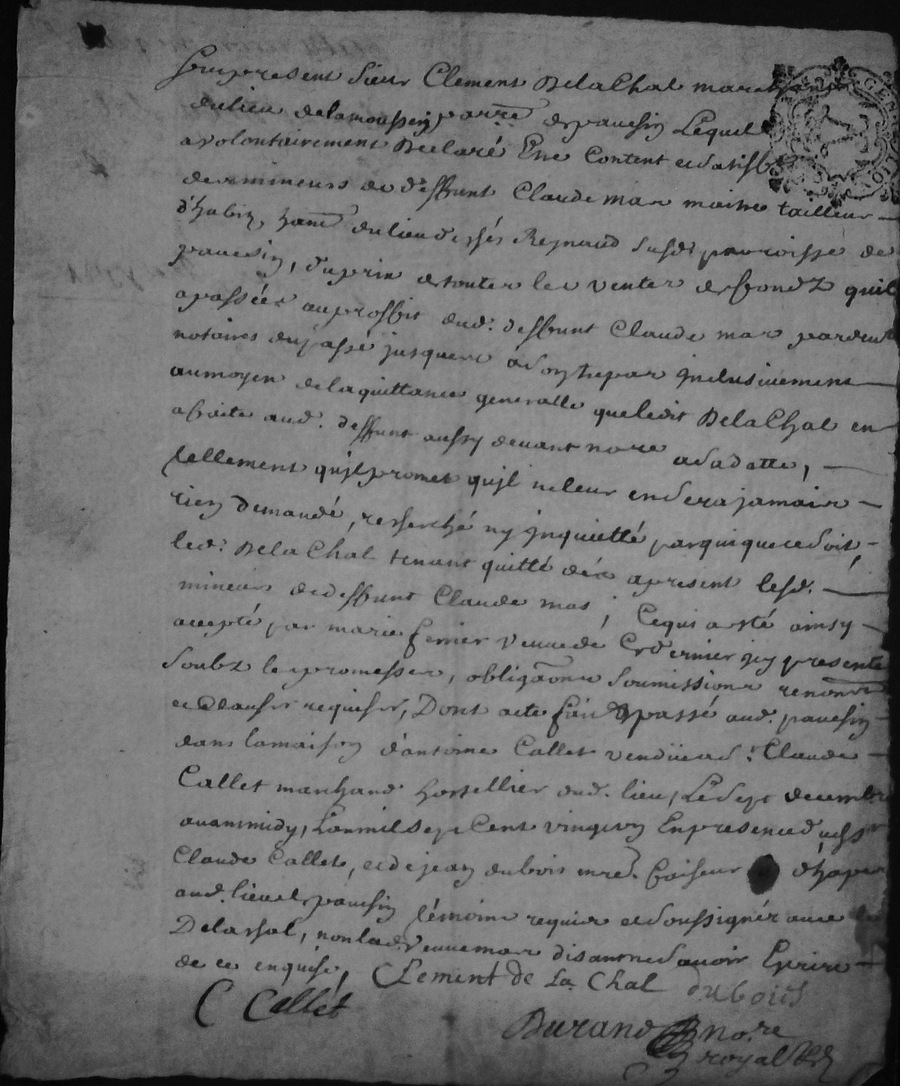 present sieur Clement Delachal marchand
du lieu de la moussey parre de pavesin Lequel
a volontairement Declaré Etre Content et satisf
des mineurs de deffunt Claude mas maitre tailleur
d'habits, habt du lieu dessés Reynaud susd. parroisse de
pavesin, du prix de toutes les ventes de fondz quil
a passées au proffit dud. deffunt Claude mas pardevt
notaires du passé jusques a inclusivement
au moyen de la quittance generalle que ledit Delachal en
a faite aud. deffunt aussy devant nore a sa datte,
tellement quil promet quil ne leur en sera jamais
rien demandé, recherché ny inquietté par qui que ce soit,
led. Delachal tenant quitté dés a present lesd.
mineurs dud. deffunt Claude mas; Ce qui a esté ainsy
accepté par marie ferrier veuve de Cy presente
soubz les promesses, obligaons soumissions renons
et clauses requises, Dont acte fait & passé aud. pavesin
dans la maison d'antoine Callet vendüe a sr. Claude
Callet marchand hostellier dud. lieu, Le sept decembre
avant midy, L'an mil sept Cent vingt En presence dud. sr
Claude Callet, et de jean dubois mre. faiseur
aud. lieu de pavesin témoins requis et soussignés avec le
Delachal, non lad. veuve mas disant ne savoir Ecrire
de ce enquise,
CLement de La Chal
dubois
C Callet
Durand nore
royal